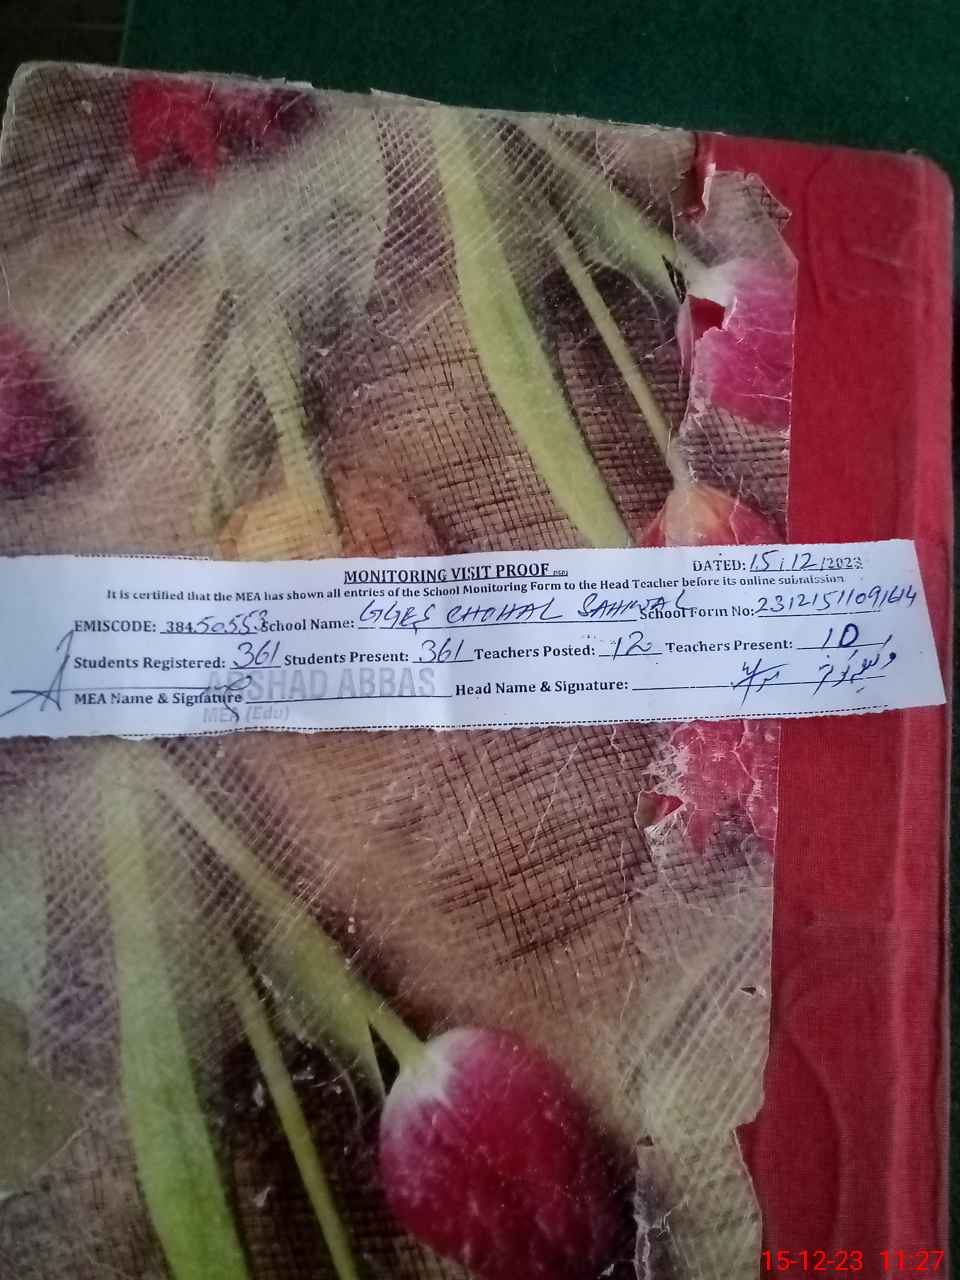 MONITORING VISIT PROOF
DATED: 15/12/2023
It is certified that the MEA has shown all entries of the School Monitoring Form to the Head Teacher before its online submission
EMISCODE: 384 School Name: GGES CHOHAL SAHIWAL School Form No: 23121511091614
Students Registered: 361 Students Present: 361 Teachers Posted: 12 Teachers Present: 10
MEA Name & Signature ARSHAD ABBAS Head Name & Signature:
MEA (Edu)
15-12-23 11:27